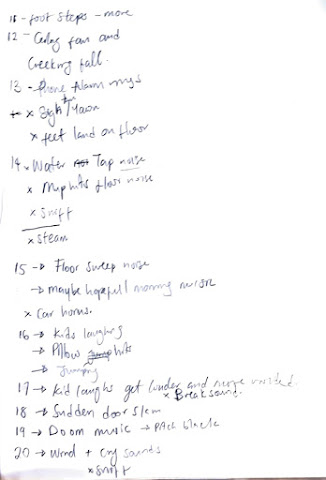 11 - foot steps - more
12 - Ceiling fan and
Creeking fall.
13 - Phone Alarm rings
x Sigh / Yawn
x feet land on floor
14 x Water Tap noise
x Mop hits floor noise
x Sniff
x Steam
15 → Floor sweep noise
→ maybe hopefull morning music
x Car horns.
16 → Kids laughing
→ Pillow hits
→ Jumping
17 → Kid laughs get louder and more
x Break sound.
18 → Sudden door slam
19 → Doom music → Pitch black
20 → Wind + Cry sounds
x Sniff